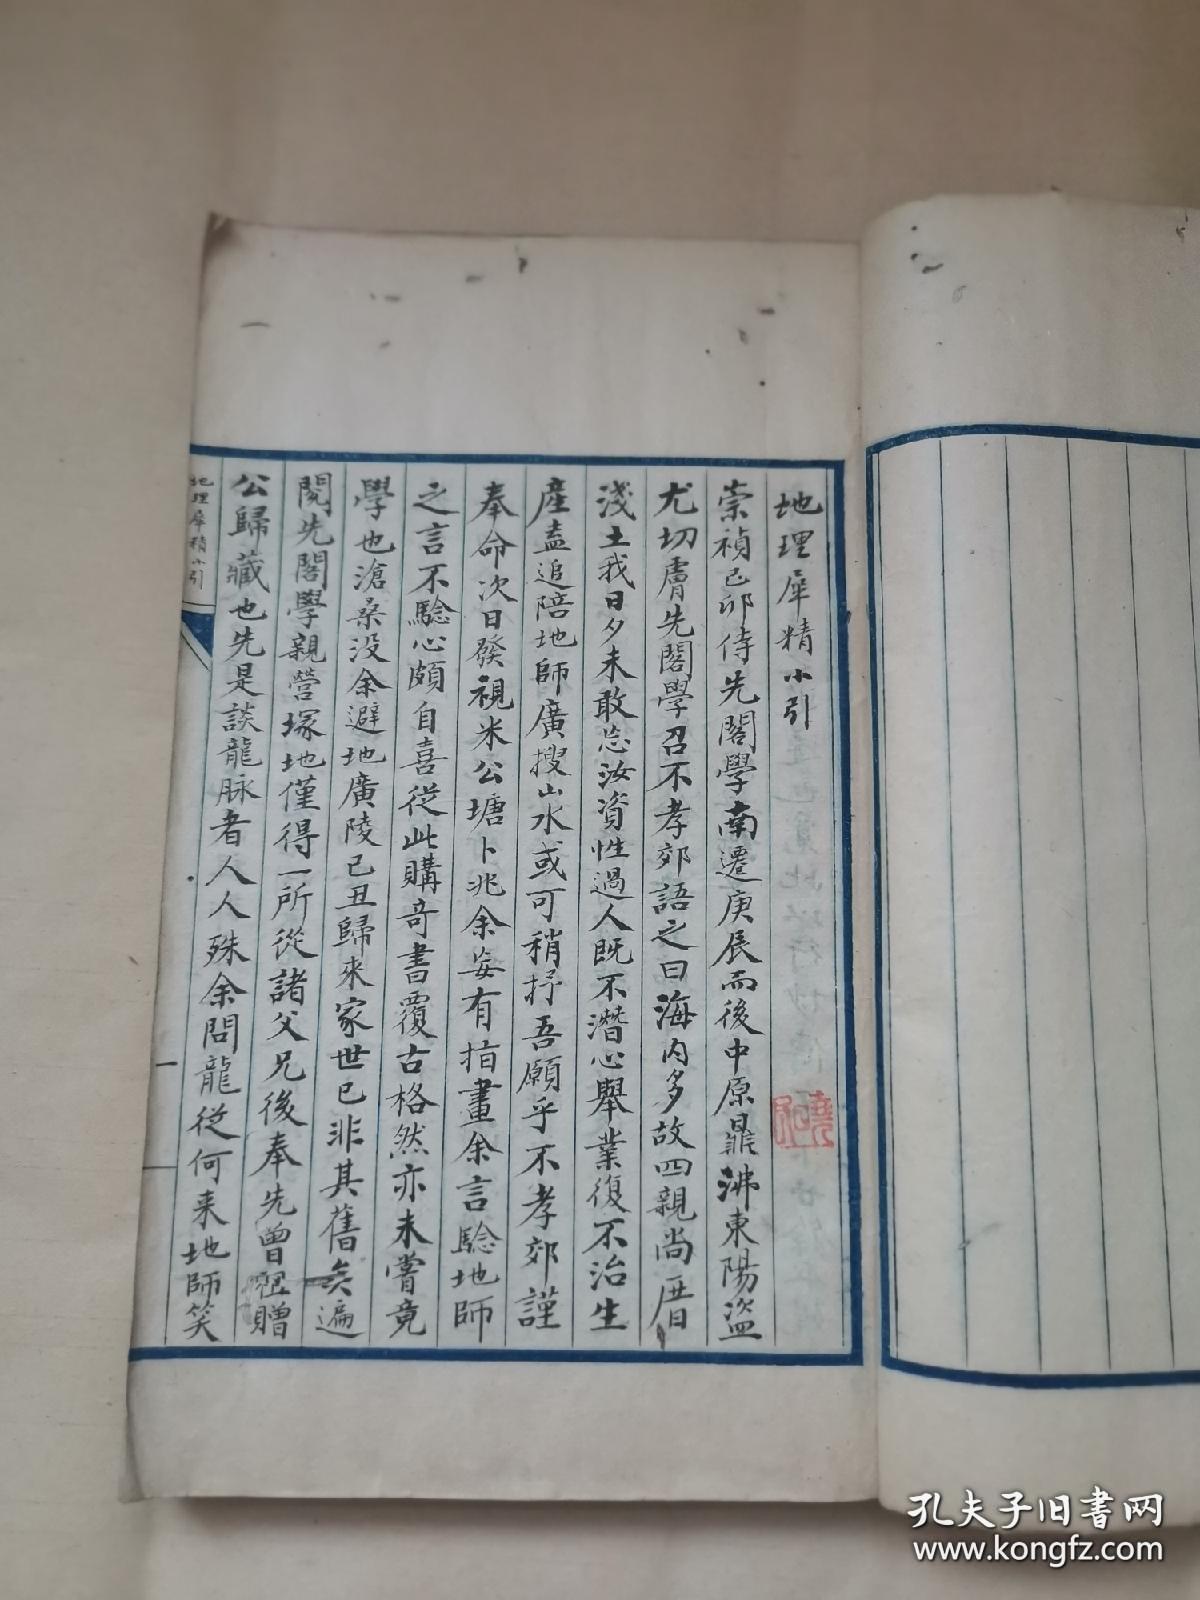 地理犀精小引
崇禎己卯侍先閣學南遷庚辰而後中原鼎沸東陽盜
尤切膚先閣學召不孝郊語之曰海內多故四親尚厝
淺土我日夕未敢忘汝資性過人既不潛心舉業復不治生
產盍追陪地師廣搜山水或可稍抒吾願乎不孝郊謹
奉命次日發視米公塘卜兆余妄有指畫余言驗地師
之言不驗心頗自喜從此購奇書覆古格然亦未嘗竟
學也滄桑沒余避地廣陵己丑歸來家世已非其舊矣遍
閱先閣學親營塚地僅得一所從諸父兄後奉先曾祖贈
公歸藏也先是談龍脉者人人殊余問龍從何来地師笑
地理犀精小引
一
孔夫子旧書网
www.kongfz.com